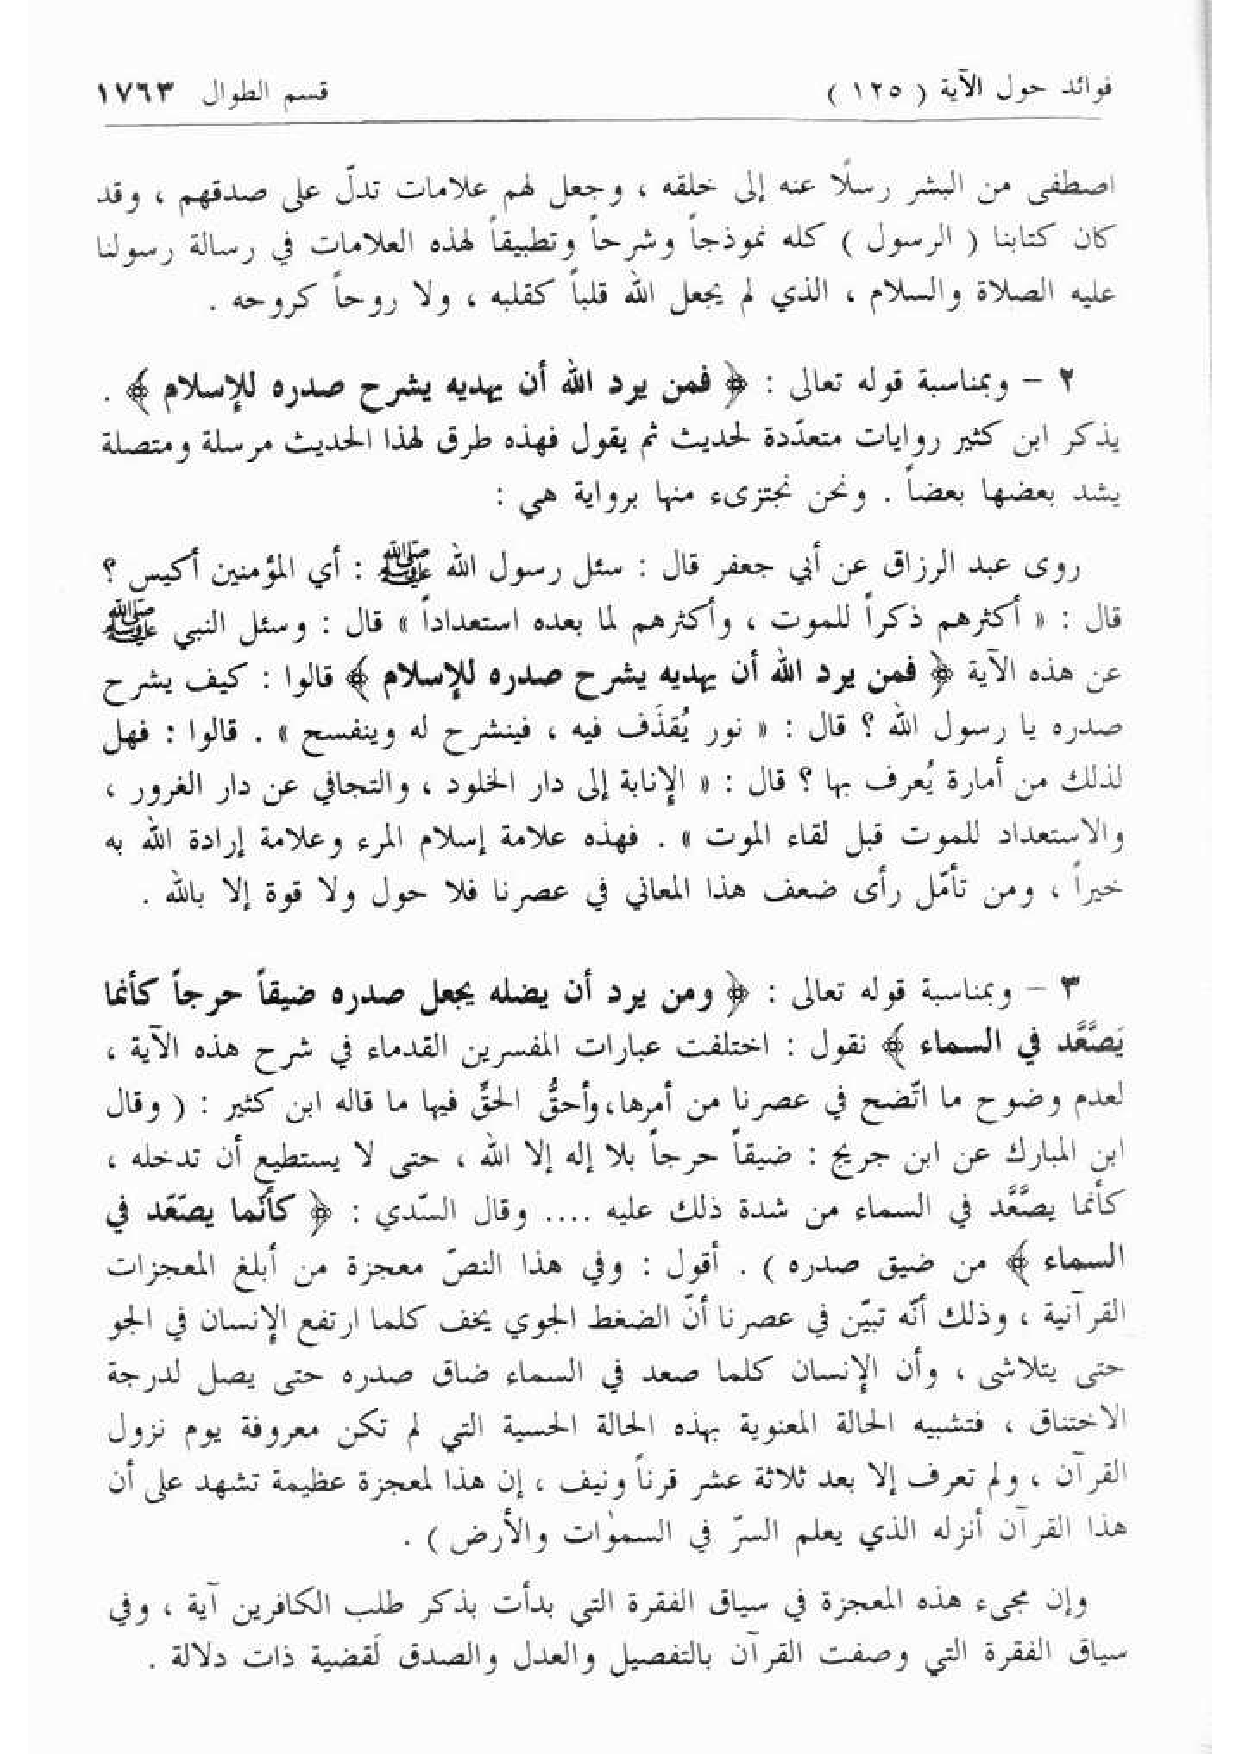 فوائد حول الآية ( ١٢٥ )
قسم الطوال ١٧٦٣
اصطفى من البشر رسلًا عنه إلى خلقه ، وجعل لهم علامات تدلّ على صدقهم ، وقد
كان كتابنا ( الرسول ) كله نموذجاً وشرحاً وتطبيقاً لهذه العلامات في رسالة رسولنا
عليه الصلاة والسلام ، الذي لم يجعل الله قلباً كقلبه ، ولا روحاً كروحه .
٢ – وبمناسبة قوله تعالى : ﴿ فمن يرد الله أن يهديه يشرح صدره للإسلام ﴾ .
يذكر ابن كثير روايات متعدّدة لحديث ثم يقول فهذه طرق لهذا الحديث مرسلة ومتصلة
يشد بعضها بعضاً . ونحن نجتزىء منها برواية هي :
روى عبد الرزاق عن أبي جعفر قال : سئل رسول الله ﷺ : أي المؤمنين أكيس ؟
قال : « أكثرهم ذكراً للموت ، وأكثرهم لما بعده استعداداً » قال : وسئل النبي ﷺ
عن هذه الآية ﴿ فمن يرد الله أن يهديه يشرح صدره للإسلام ﴾ قالوا : كيف يشرح
صدره يا رسول الله ؟ قال : « نور يُقذَف فيه ، فينشرح له وينفسح » . قالوا : فهل
لذلك من أمارة يُعرف بها ؟ قال : « الإنابة إلى دار الخلود ، والتجافي عن دار الغرور ،
والاستعداد للموت قبل لقاء الموت » . فهذه علامة إسلام المرء وعلامة إرادة الله به
خيراً ، ومن تأمّل رأى ضعف هذا المعاني في عصرنا فلا حول ولا قوة إلا بالله .
٣ – وبمناسبة قوله تعالى : ﴿ ومن يرد أن يضله يجعل صدره ضيقاً حرجاً كأنما
يَصَّعَّد في السماء ﴾ نقول : اختلفت عبارات المفسرين القدماء في شرح هذه الآية ،
لعدم وضوح ما اتّضح في عصرنا من أمرها،وأحقُّ الحقِّ فيها ما قاله ابن كثير : ( وقال
ابن المبارك عن ابن جريج : ضيقاً حرجاً بلا إله إلا الله ، حتى لا يستطيع أن تدخله ،
كأنما يصَّعَّد في السماء من شدة ذلك عليه .... وقال السّدي : ﴿ كأنّما يصّعّد في
السماء ﴾ من ضيق صدره ) . أقول : وفي هذا النصّ معجزة من أبلغ المعجزات
القرآنية ، وذلك أنّه تبيّن في عصرنا أنّ الضغط الجوي يخف كلما ارتفع الإنسان في الجو
حتى يتلاشى ، وأن الإنسان كلما صعد في السماء ضاق صدره حتى يصل لدرجة
الاختناق ، فتشبيه الحالة المعنوية بهذه الحالة الحسية التي لم تكن معروفة يوم نزول
القرآن ، ولم تعرف إلا بعد ثلاثة عشر قرناً ونيف ، إن هذا لمعجزة عظيمة تشهد على أن
هذا القرآن أنزله الذي يعلم السرّ في السمٰوات والأرض ) .
وإن مجيء هذه المعجزة في سياق الفقرة التي بدأت بذكر طلب الكافرين آية ، وفي
سياق الفقرة التي وصفت القرآن بالتفصيل والعدل والصدق لَقضية ذات دلالة .